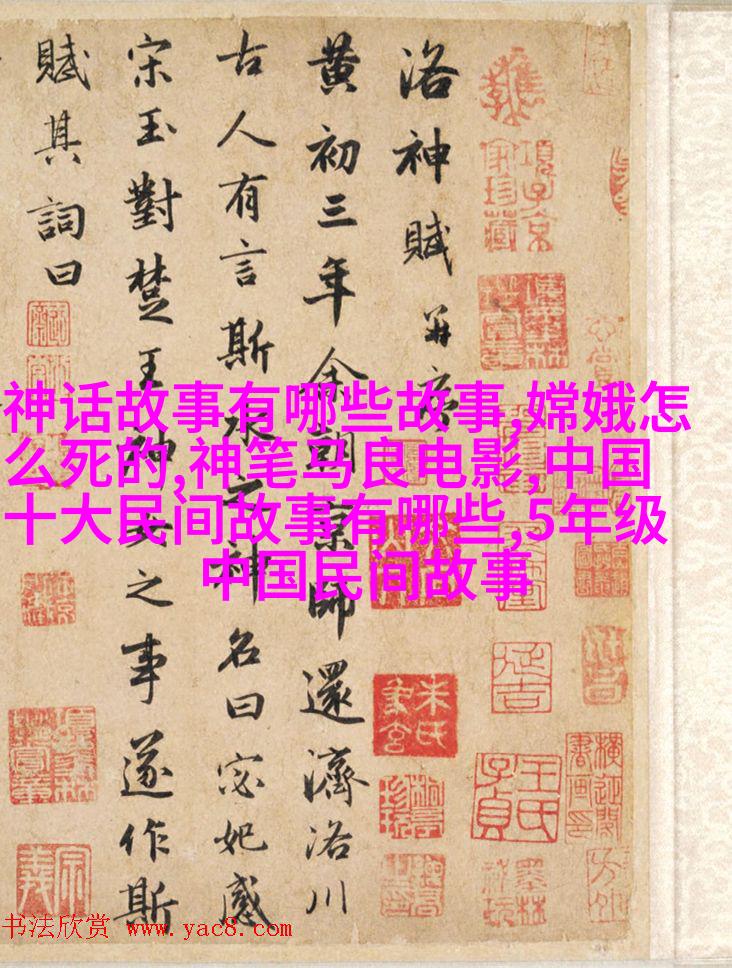 洛神賦并序
黄初三年余朝京師還濟洛川
古人有言斯水之神名曰宓妃感
宋玉對楚王神女之事遂作斯
賦其詞曰
神话故事有哪些故事,嫦娥怎
么死的,神笔马良电影,中国
十大民间故事有哪些,5年级
中国民间故事
項子京
家珍藏
书法欣赏 www.yac8.com